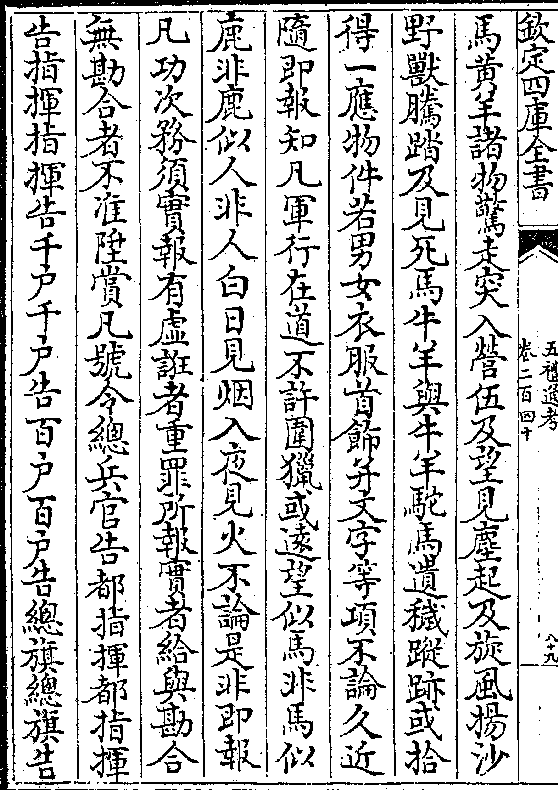 欽定四庫全書
五禮通考
卷二百四十
八十九
馬黃羊諸物驚走突入營伍及望見塵起及旋風揚沙
野獸騰踏及見死馬牛羊與牛羊駝馬遺穢蹤跡或拾
得一應物件若男女衣服首飾并文字等項不論久近
隨即報知凡軍行在道不許圍獵或逺望似馬非馬似
鹿非鹿似人非人白日見烟入夜見火不論是非即報
凡功次務須實報有虛誑者重罪所報實者給與勘合
無勘合者不准陞賞凡號令總兵官告都指揮都指揮
告指揮指揮告千户千户告百户百户告總旗總旗告